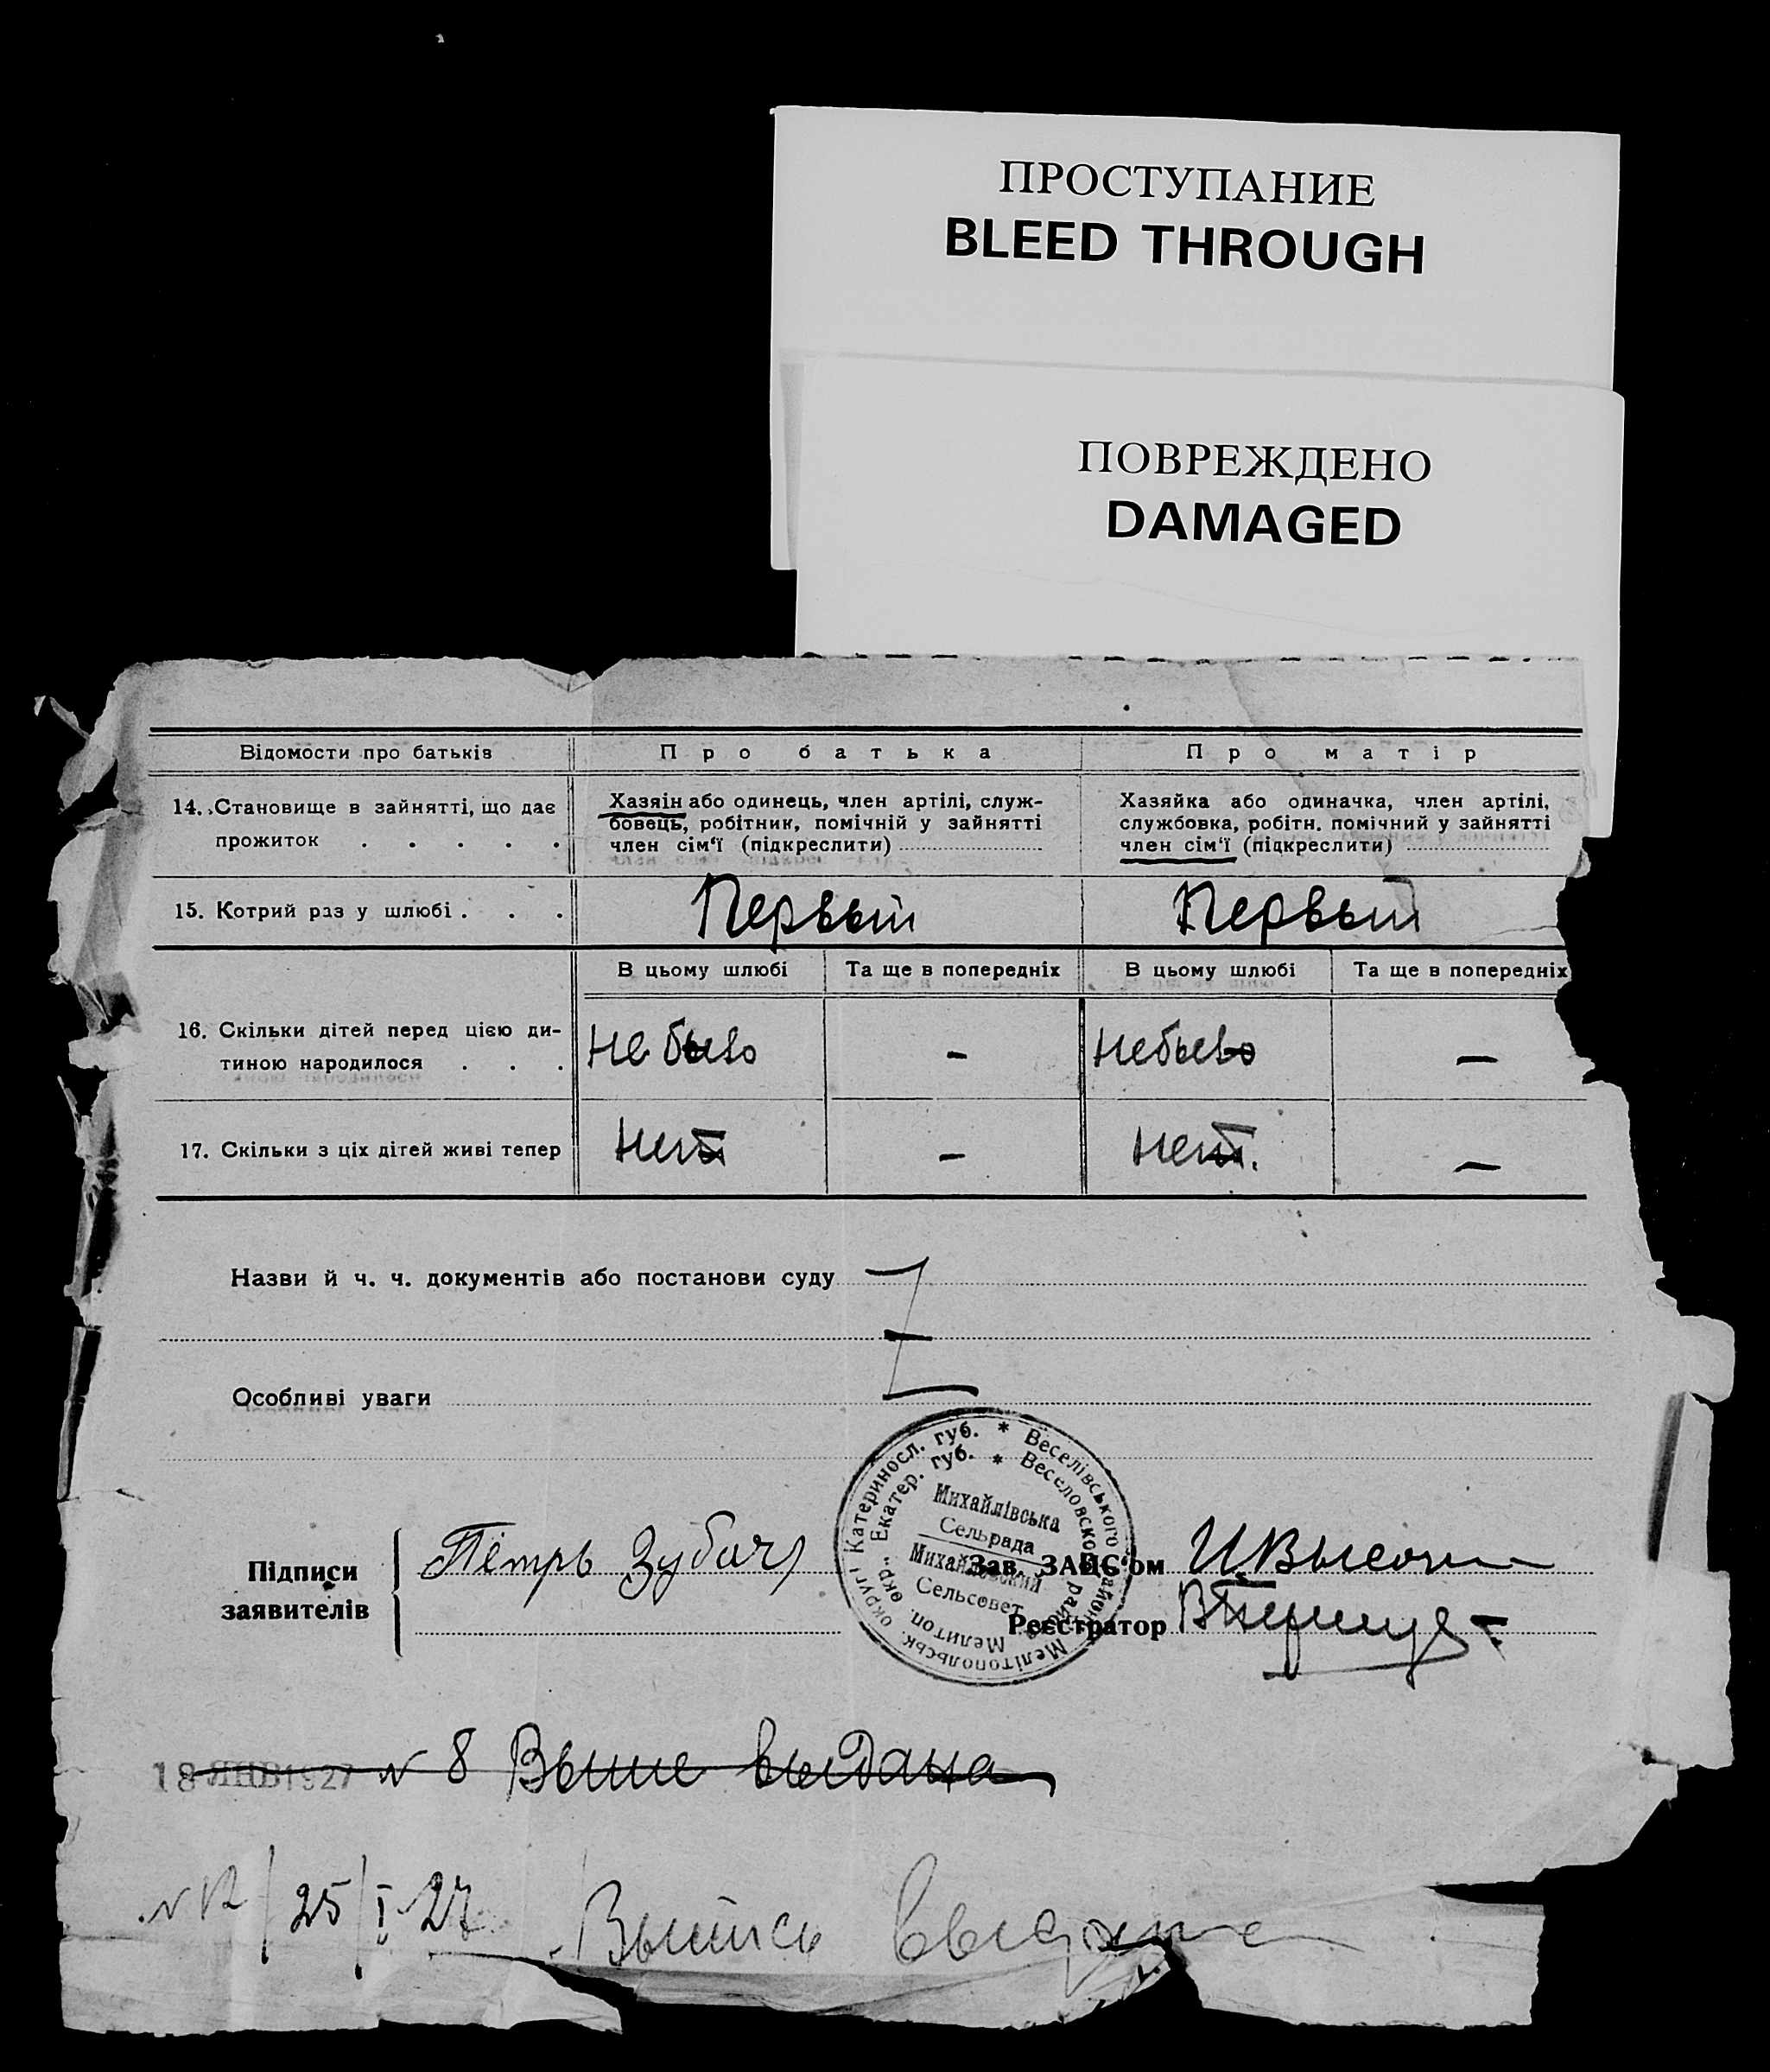 ПРОСТУПАНИЕ
BLEED THROUGH
ПОВРЕЖДЕНО
DAMAGED
Відомости про батьків
Про батька
Про матір
14. Становище в зайнятті, що дає
прожиток . . . . .
Хазяін або одинець, член артілі, служ-
бовець, робітник, помічній у зайнятті
член сім'ї (підкреслити)
Хазяйка або одиначка, член артілі,
службовка, робітн. помічний у зайнятті
член сім'ї (підкреслити)
15. Котрий раз у шлюбі . . .
Первый
Первый
В цьому шлюбі
Та ще в попередніх
В цьому шлюбі
Та ще в попередніх
16. Скільки дітей перед цією ди-
тиною народилося . . .
Не было
-
Небыло
-
17. Скільки з ціх дітей живі тепер
Нет
-
Нет.
-
Назви й ч. ч. документів або постанови суду
Особливі уваги
Мелітопольськ. округі Катериносл. губ. * Веселівського район
Мелитоп. окр. Екатер. губ. * Веселовского район
Михайлівська
Сельрада
Михайловский
Сельсовет
Підписи
заявителів
Петръ Зубач
Зав. ЗАЦС'ом
Реєстратор
18 ЯНВ 1927 N 8 Выпис выдана
N 12/25/I-27 Выпись выдана